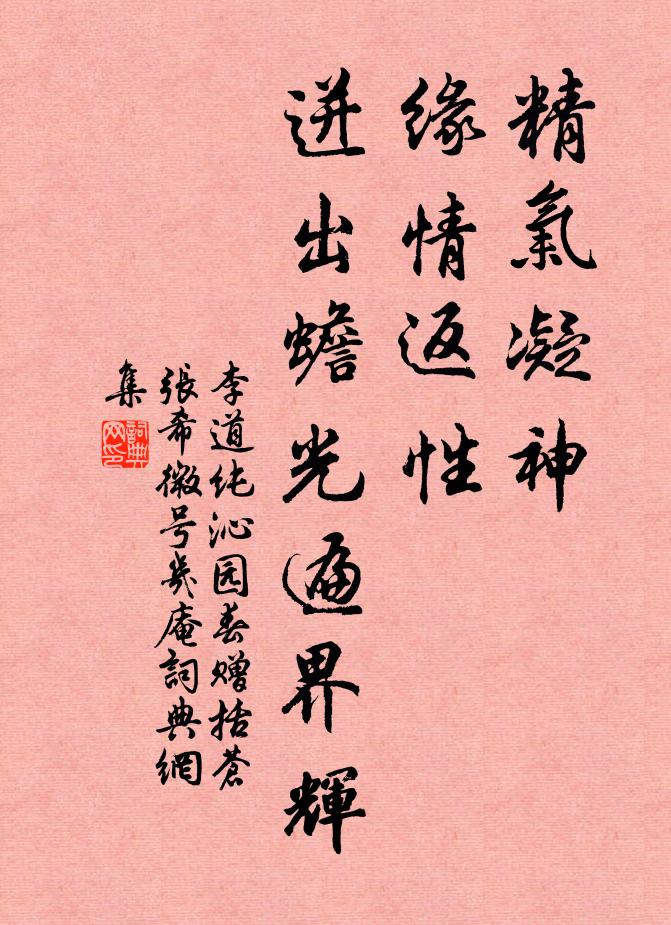 精氣凝神
緣情返性
迸出蟾光遍界輝
李道纯沁园春赠括蒼
張希微号幾庵詞典網
集
詞典
网印